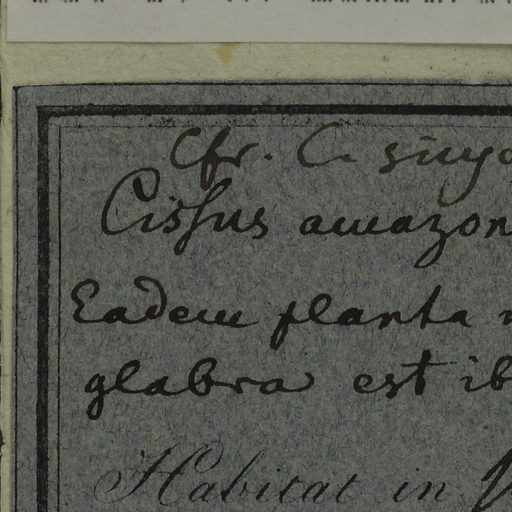 Cfr. C.
Cissus amazon
Eadem planta
glabra est ib
Habitat in